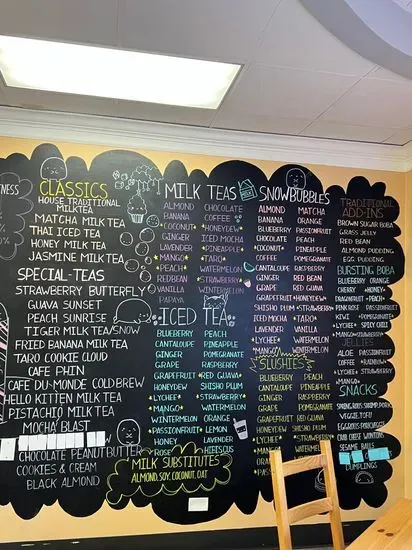 NESS
CLASSICS
HOUSE TRADITIONAL
MILKTEA
MATCHA MILK TEA
THAI ICED TEA
HONEY MILK TEA
JASMINE MILK TEA
SPECIAL-TEAS
STRAWBERRY BUTTERFLY
GUAVA SUNSET
PEACH SUNRISE
TIGER MILK TEA/SNOW
FRIED BANANA MILK TEA
TARO COOKIE CLOUD
CAFE PHIN
CAFE DU-MONDE COLDBREW
HELLO KITTEN MILK TEA
PISTACHIO MILK TEA
MOCHA BLAST
CHOCOLATE PEANUT BUTTER
COOKIES & CREAM
BLACK ALMOND
MILK TEAS
ALMOND
BANANA
COCONUT
GINGER
LAVENDER
*MANGO*
*PEACH*
REDBEAN
VANILLA
PAPAYA
CHOCOLATE
COFFEE
*HONEYDEW*
ICED MOCHA
*TARO*
WATERMELON
*STRAWBERRY*
WINTERMELON
ICED TEA
BLUEBERRY
CANTALOUPE
GINGER
GRAPE
GRAPEFRUIT
HONEYDEW
*LYCHEE*
*MANGO*
WINTERMELON
ORANGE
*PASSIONFRUIT*
HONEY
ROSE
PEACH
PINEAPPLE
POMEGRANATE
RASPBERRY
RED GUAVA
SHISHO PLUM
*STRAWBERRY*
WATERMELON
*MATCHA*
LEMON
LAVENDER
HIBISCUS
MILK SUBSTITUTES
ALMOND, SOY, COCONUT, OAT
SNOWBUBBLES
ALMOND
BANANA
BLUEBERRY
CHOCOLATE
COCONUT
COFFEE
CANTALOUPE
GINGER
GRAPE
GRAPEFRUIT
SHISHO PLUM
ICED MOCHA
LAVENDER
LYCHEE
*MANGO*
MATCHA
ORANGE
PASSIONFRUIT
PEACH
PINEAPPLE
POMEGRANATE
RASPBERRY
RED BEAN
RED GUAVA
*HONEYDEW*
*STRAWBERRY*
*TARO*
VANILLA
WATERMELON
WINTERMELON
SLUSHIES
BLUEBERRY
CANTALOUPE
GRAPE
GRAPEFRUIT
*LYCHEE*
*MANGO*
ORANGE
*PASSIONFRUIT*
PEACH
PINEAPPLE
POMEGRANATE
RED GUAVA
SHISHO PLUM
TRADITIONAL
ADD-INS
BROWN SUGAR BOBA
GRASS JELLY
RED BEAN
ALMOND PUDDING
EGG PUDDING
BURSTING BOBA
BLUEBERRY ORANGE
CHERRY *HONEYDEW*
DRAGONFRUIT *PEACH*
PINK ROSE PASSIONFRUIT
KIWI *POMEGRANATE*
*LYCHEE* SPICY CHILI
*MANGO* *STRAWBERRY*
JELLIES
ALOE PASSIONFRUIT
COFFEE RAINBOW
*LYCHEE* *STRAWBERRY*
*MANGO*
SNACKS
SPRINGROLLS: SHRIMP, PORK
SPECIAL TOFU
EGGROLLS: PORK & VEGGIE
CRAB CHEESE WONTONS
SESAME BALLS
DUMPLINGS